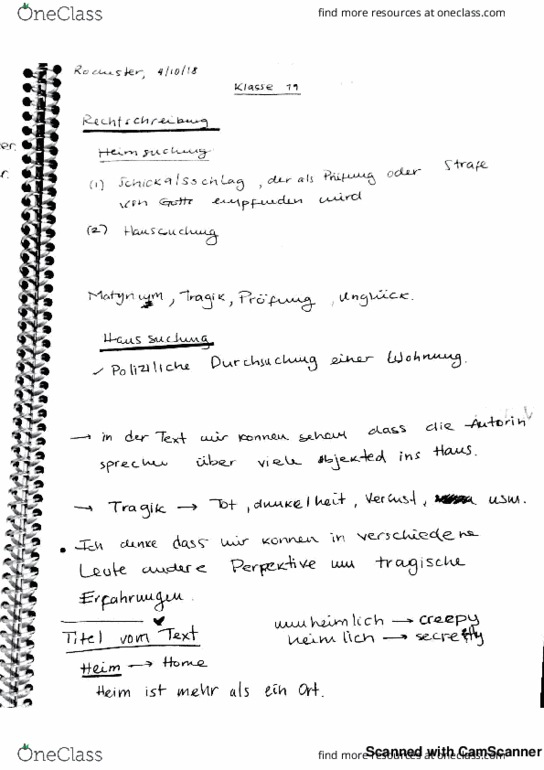 OneClass
find more resources at oneclass.com
Rochester, 4/10/18
Klasse 19
er.
r.
Rechtschreibung
Heimsuchung
(1) Schickalsschlag, der als Prüfung oder Strafe
von Gotts empfunden wird
(2) Haussuchung
Matyrium, Tragik, Pröfung, unglück.
Haussuchung
✓ Poliziliche Durchsuchung einer Wohnung.
→ in der Text wir konnen sehen dass die Autorin
sprechen über viele objekted ins Haus.
→ Tragik → Tot, dunkelheit, Verlust, usw.
• Ich denke dass wir konnen in verschiedene
Leute andere Perpektive um tragische
Erfahrungen.
Titel vom Text
unheimlich → creepy
heimlich → secretly
Heim → Home
Heim ist mehr als ein Ort.
OneClass
find more resources at oneclass.com
Scanned with CamScanner